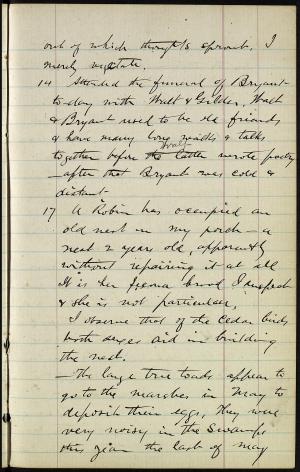 out of which thoughts sprout. I
merely vegetate.
14 Attended the funeral of Bryant
to-day with Walt & Gilder. Walt
& Bryant used to be old friends
& have many long walks & talks
Walt
together before the latter wrote poetry
- after that Bryant was cold &
distant
17 A Robin has occupied an
old nest on my porch - a
nest 2 years old, apparently
without repairing it at all
It is her second brood I suspect
& she is not particular,
I observe that of the cedar birds
both sexes aid in building
the nest.
- The large tree toads appear to
go to the marshes in May to
deposit their eggs, they were
very noisy in the swamps
this year the last of May